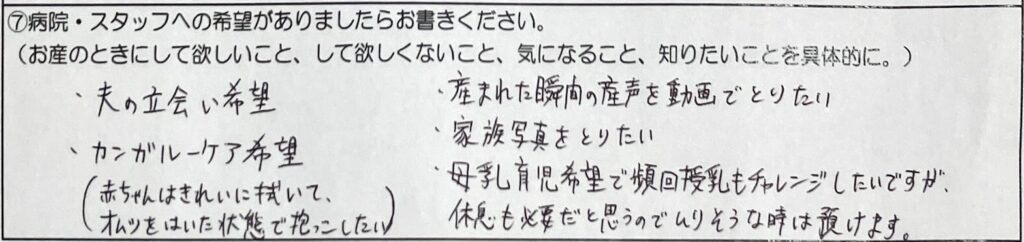 ⑦病院・スタッフへの希望がありましたらお書きください。
（お産のときにして欲しいこと、して欲しくないこと、気になること、知りたいことを具体的に。）
・夫の立会い希望
・カンガルーケア希望
(赤ちゃんはきれいに拭いて、
オムツをはいた状態で抱っこしたい)
・産まれた瞬間の産声を動画でとりたい
・家族写真をとりたい
・母乳育児希望で頻回授乳もチャレンジしたいですが、
休息も必要だと思うのでムリそうな時は預けます。